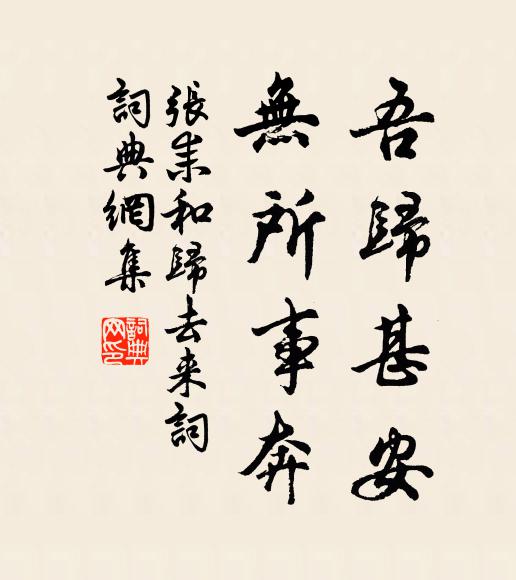 吾歸甚安
無所事奔
張耒和歸去来詞
詞典網集
詞典网印